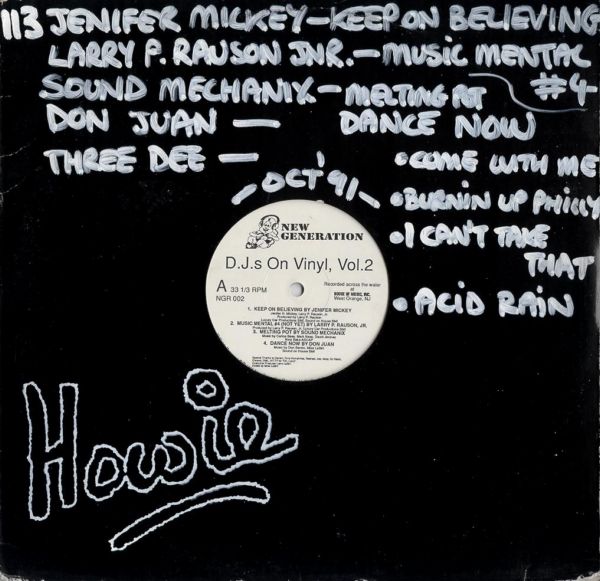 113 JENIFER MICKEY-KEEP ON BELIEVING
LARRY P. RAUSON JNR. - MUSIC MENTAL
#4
SOUND MECHANIX - MELTING POT
DON JUAN - DANCE NOW
THREE DEE - • COME WITH ME
• BURNIN UP PHILLY
• I CAN'T TAKE
THAT
• ACID RAIN
- OCT '91 -
NEW
GENERATION
D.J.s On Vinyl, Vol.2
A 33 1/3 RPM
NGR 002
Recorded across the water
at
HOUSE OF MUSIC, INC.
West Orange, NJ
1. KEEP ON BELIEVING BY JENIFER MICKEY
Produced by Larry P. Rauson
2. MUSIC MENTAL #4 (NOT YET) BY LARRY P. RAUSON, JR.
3. MELTING POT BY SOUND MECHANIX
4. DANCE NOW BY DON JUAN
Howie